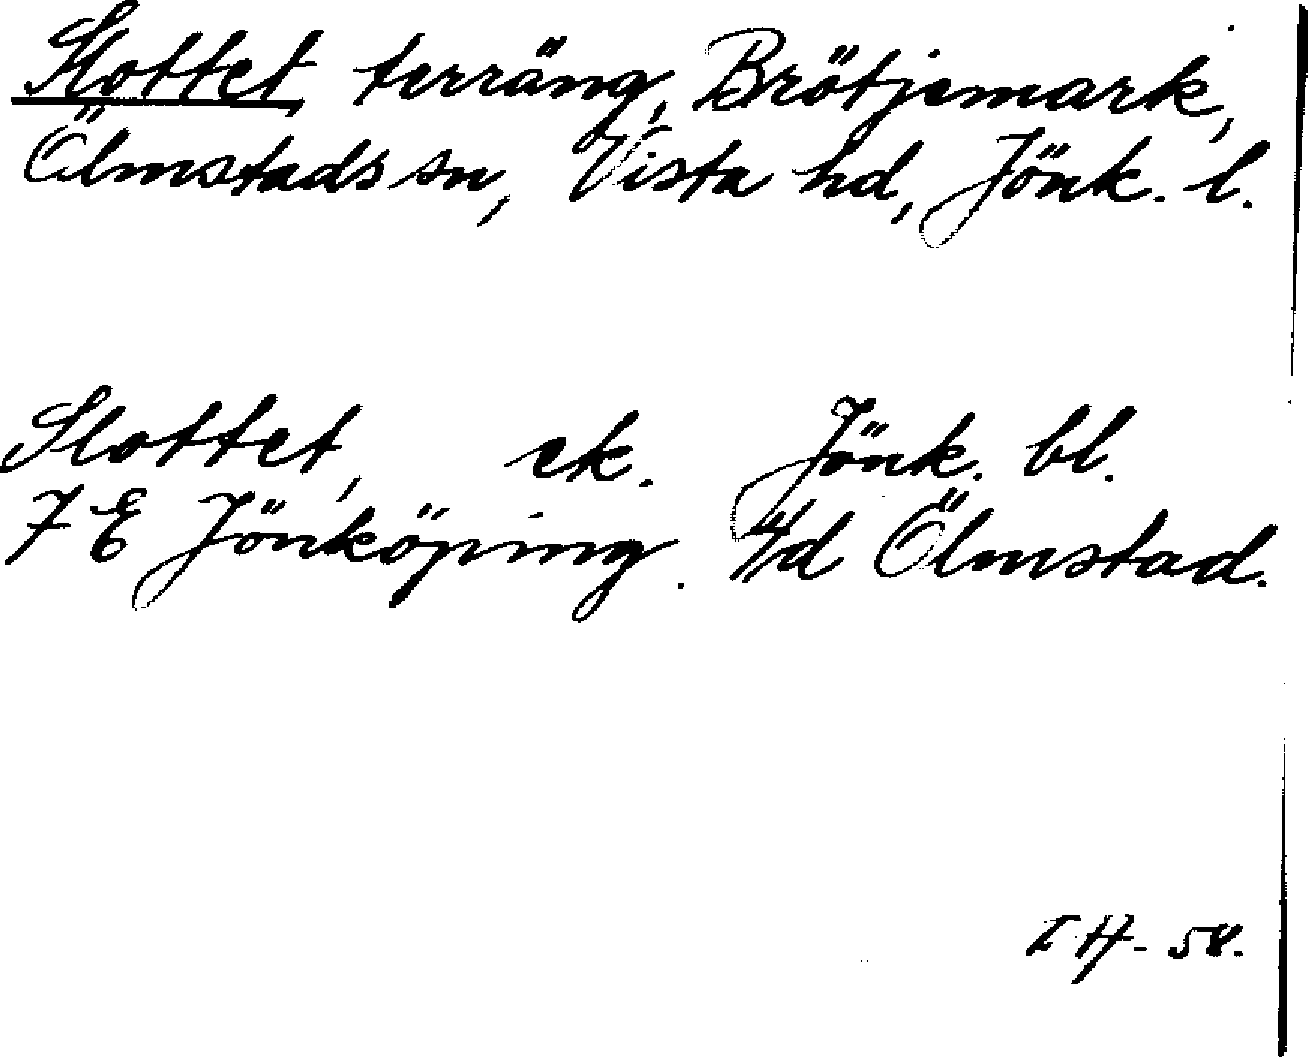 Slottet, terräng, Brötjemark,
Ölmstads sn, Vista hd, Jönk. l.
Slottet, ek. Jönk. bl.
7 E Jönköping. 4d Ölmstad.
I H - 58.